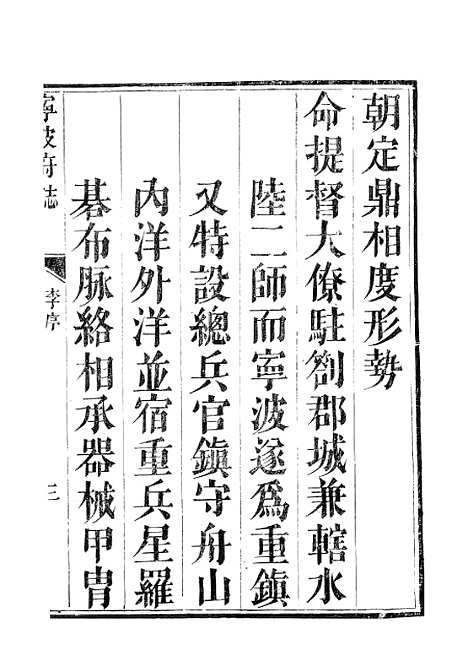 朝定鼎相度形勢
命提督大僚駐劄郡城兼轄水
陸二師而寧波遂爲重鎮
又特設總兵官鎮守舟山
內洋外洋並宿重兵星羅
碁布脉絡相承器械甲冑
寧波府志
李序
三